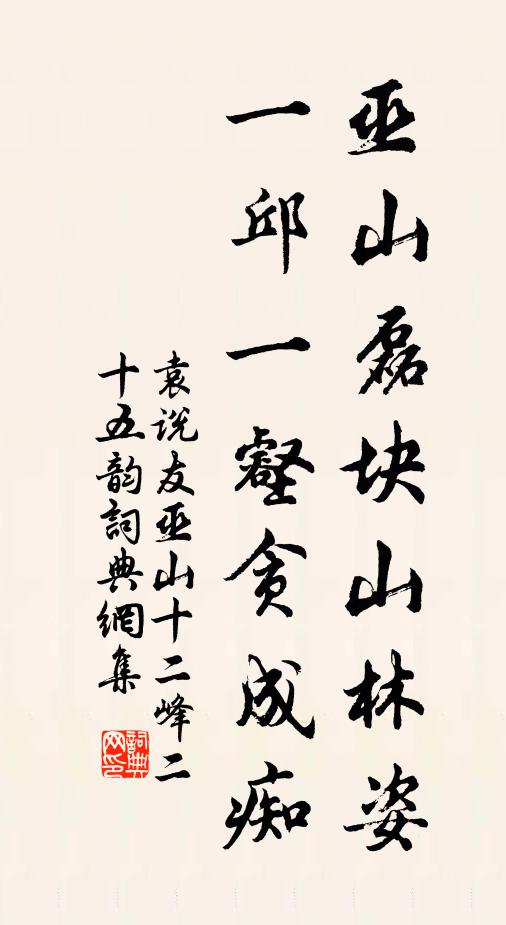 巫山磊块山林姿
一邱一壑貪成痴
袁说友巫山十二峰二
十五韵詞典網集
詞典网印